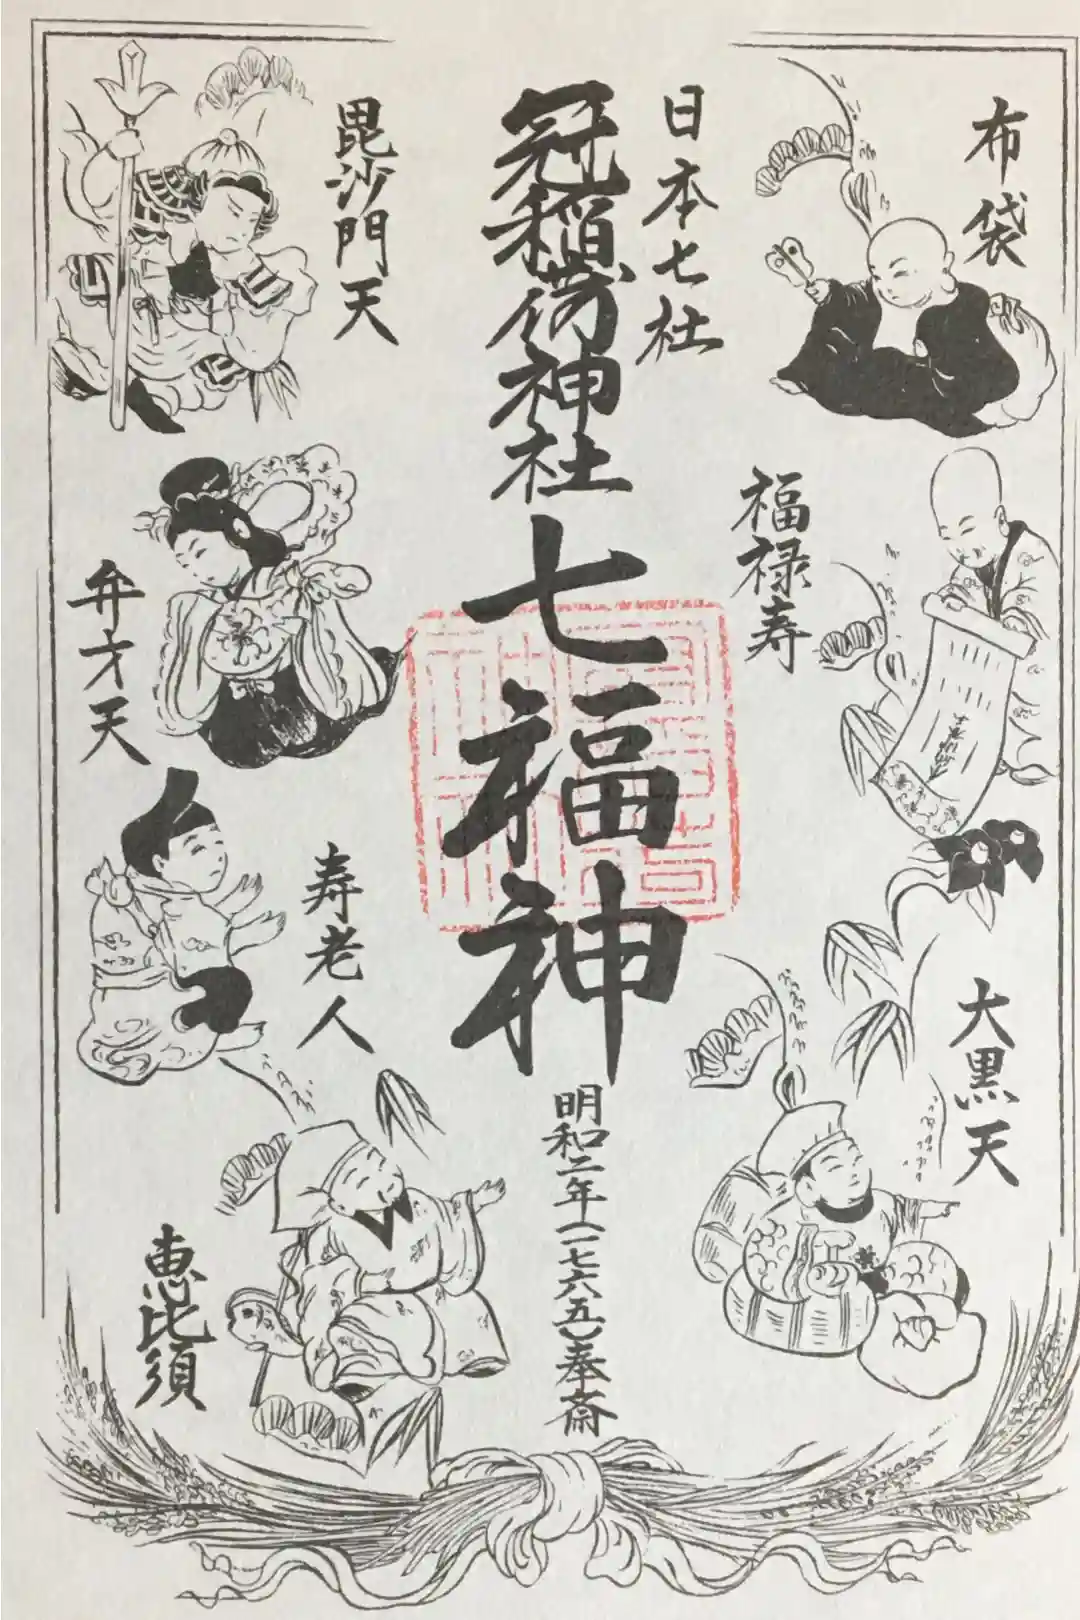 布袋
日本七社
冠稲荷神社
七福神
毘沙門天
福禄寿
弁才天
寿老人
大黒天
恵比須
明和二年(一七六五)奉斎